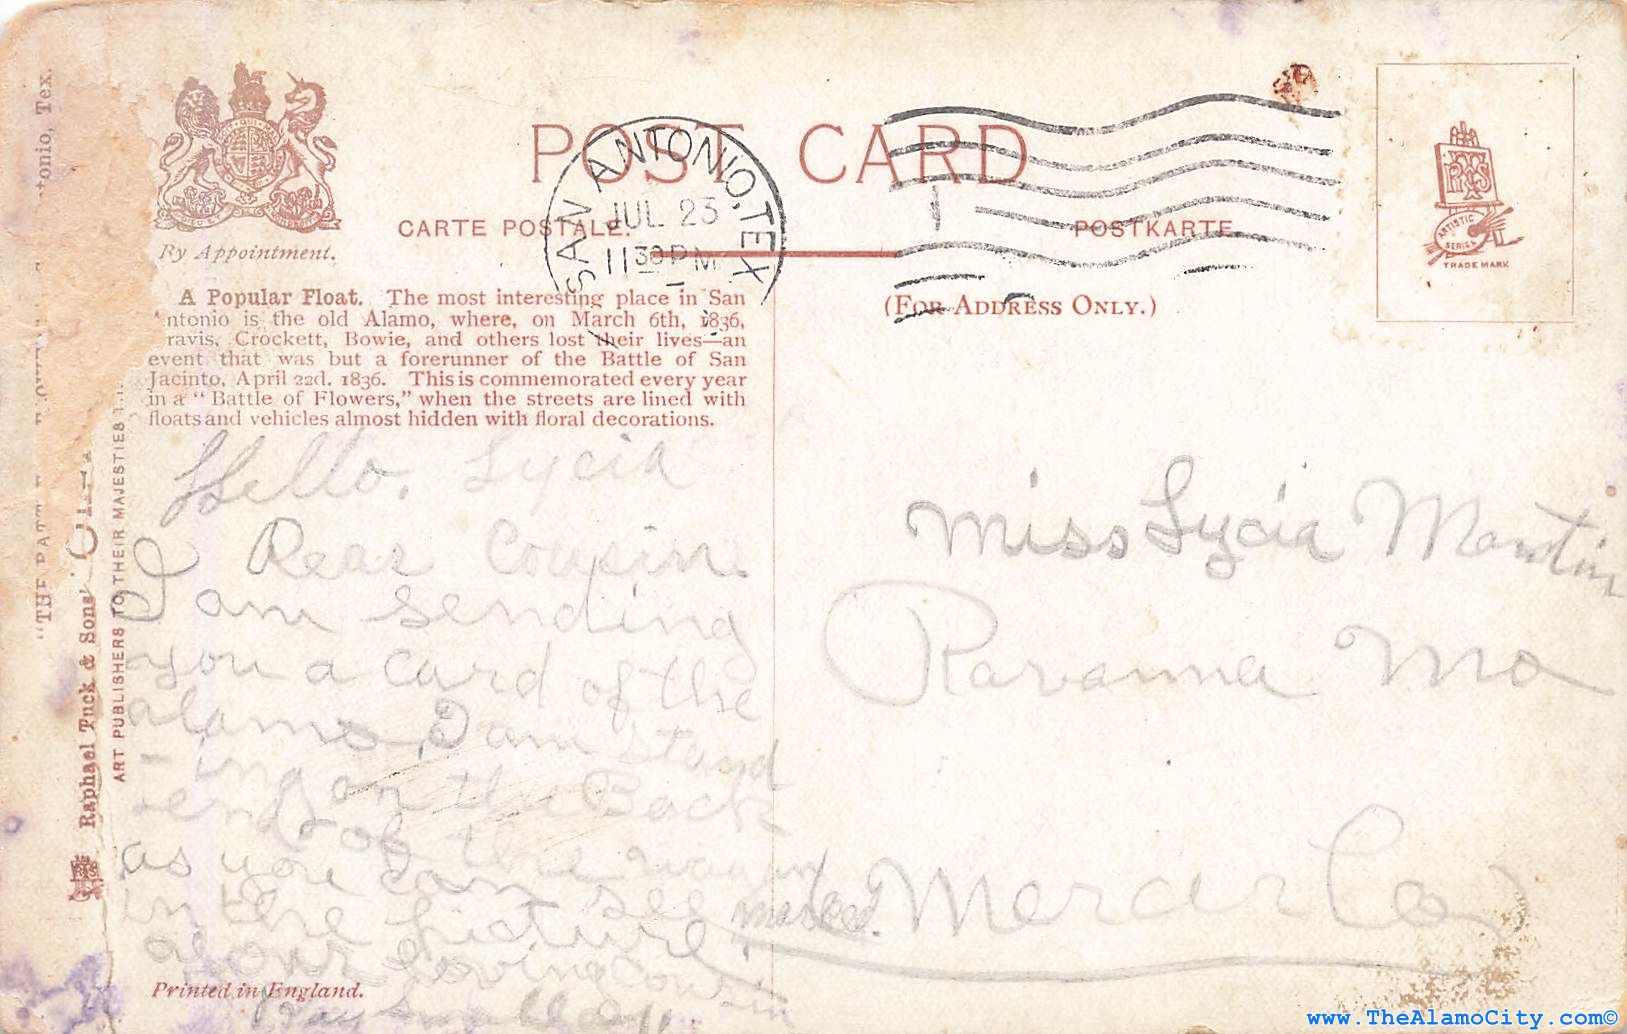 POST CARD
CARTE POSTALE.
POSTKARTE
By Appointment.
SAN ANTONIO, TEX
JUL 23
11 30 PM
(FOR ADDRESS ONLY.)
ARTISTIC SERIES
TRADE MARK
A Popular Float. The most interesting place in San
ntonio is the old Alamo, where, on March 6th, 1836,
ravis, Crockett, Bowie, and others lost their lives—an
event that was but a forerunner of the Battle of San
Jacinto, April 22d. 1836. This is commemorated every year
in a "Battle of Flowers," when the streets are lined with
floats and vehicles almost hidden with floral decorations.
Hello. Lycia
Dear Cousin.
I am sending
you a card of the
alamo, I am stand
-ing on the Back
end of the wagon
as you can see marked.
in the picture.
your loving cousin
Miss Lycia Martin
Ravanna Mo
Mercer Co
tonio, Tex.
"THE BATT
Raphael Tuck & Sons'
ART PUBLISHERS TO THEIR MAJESTIES
Printed in England.
www.TheAlamoCity.com©